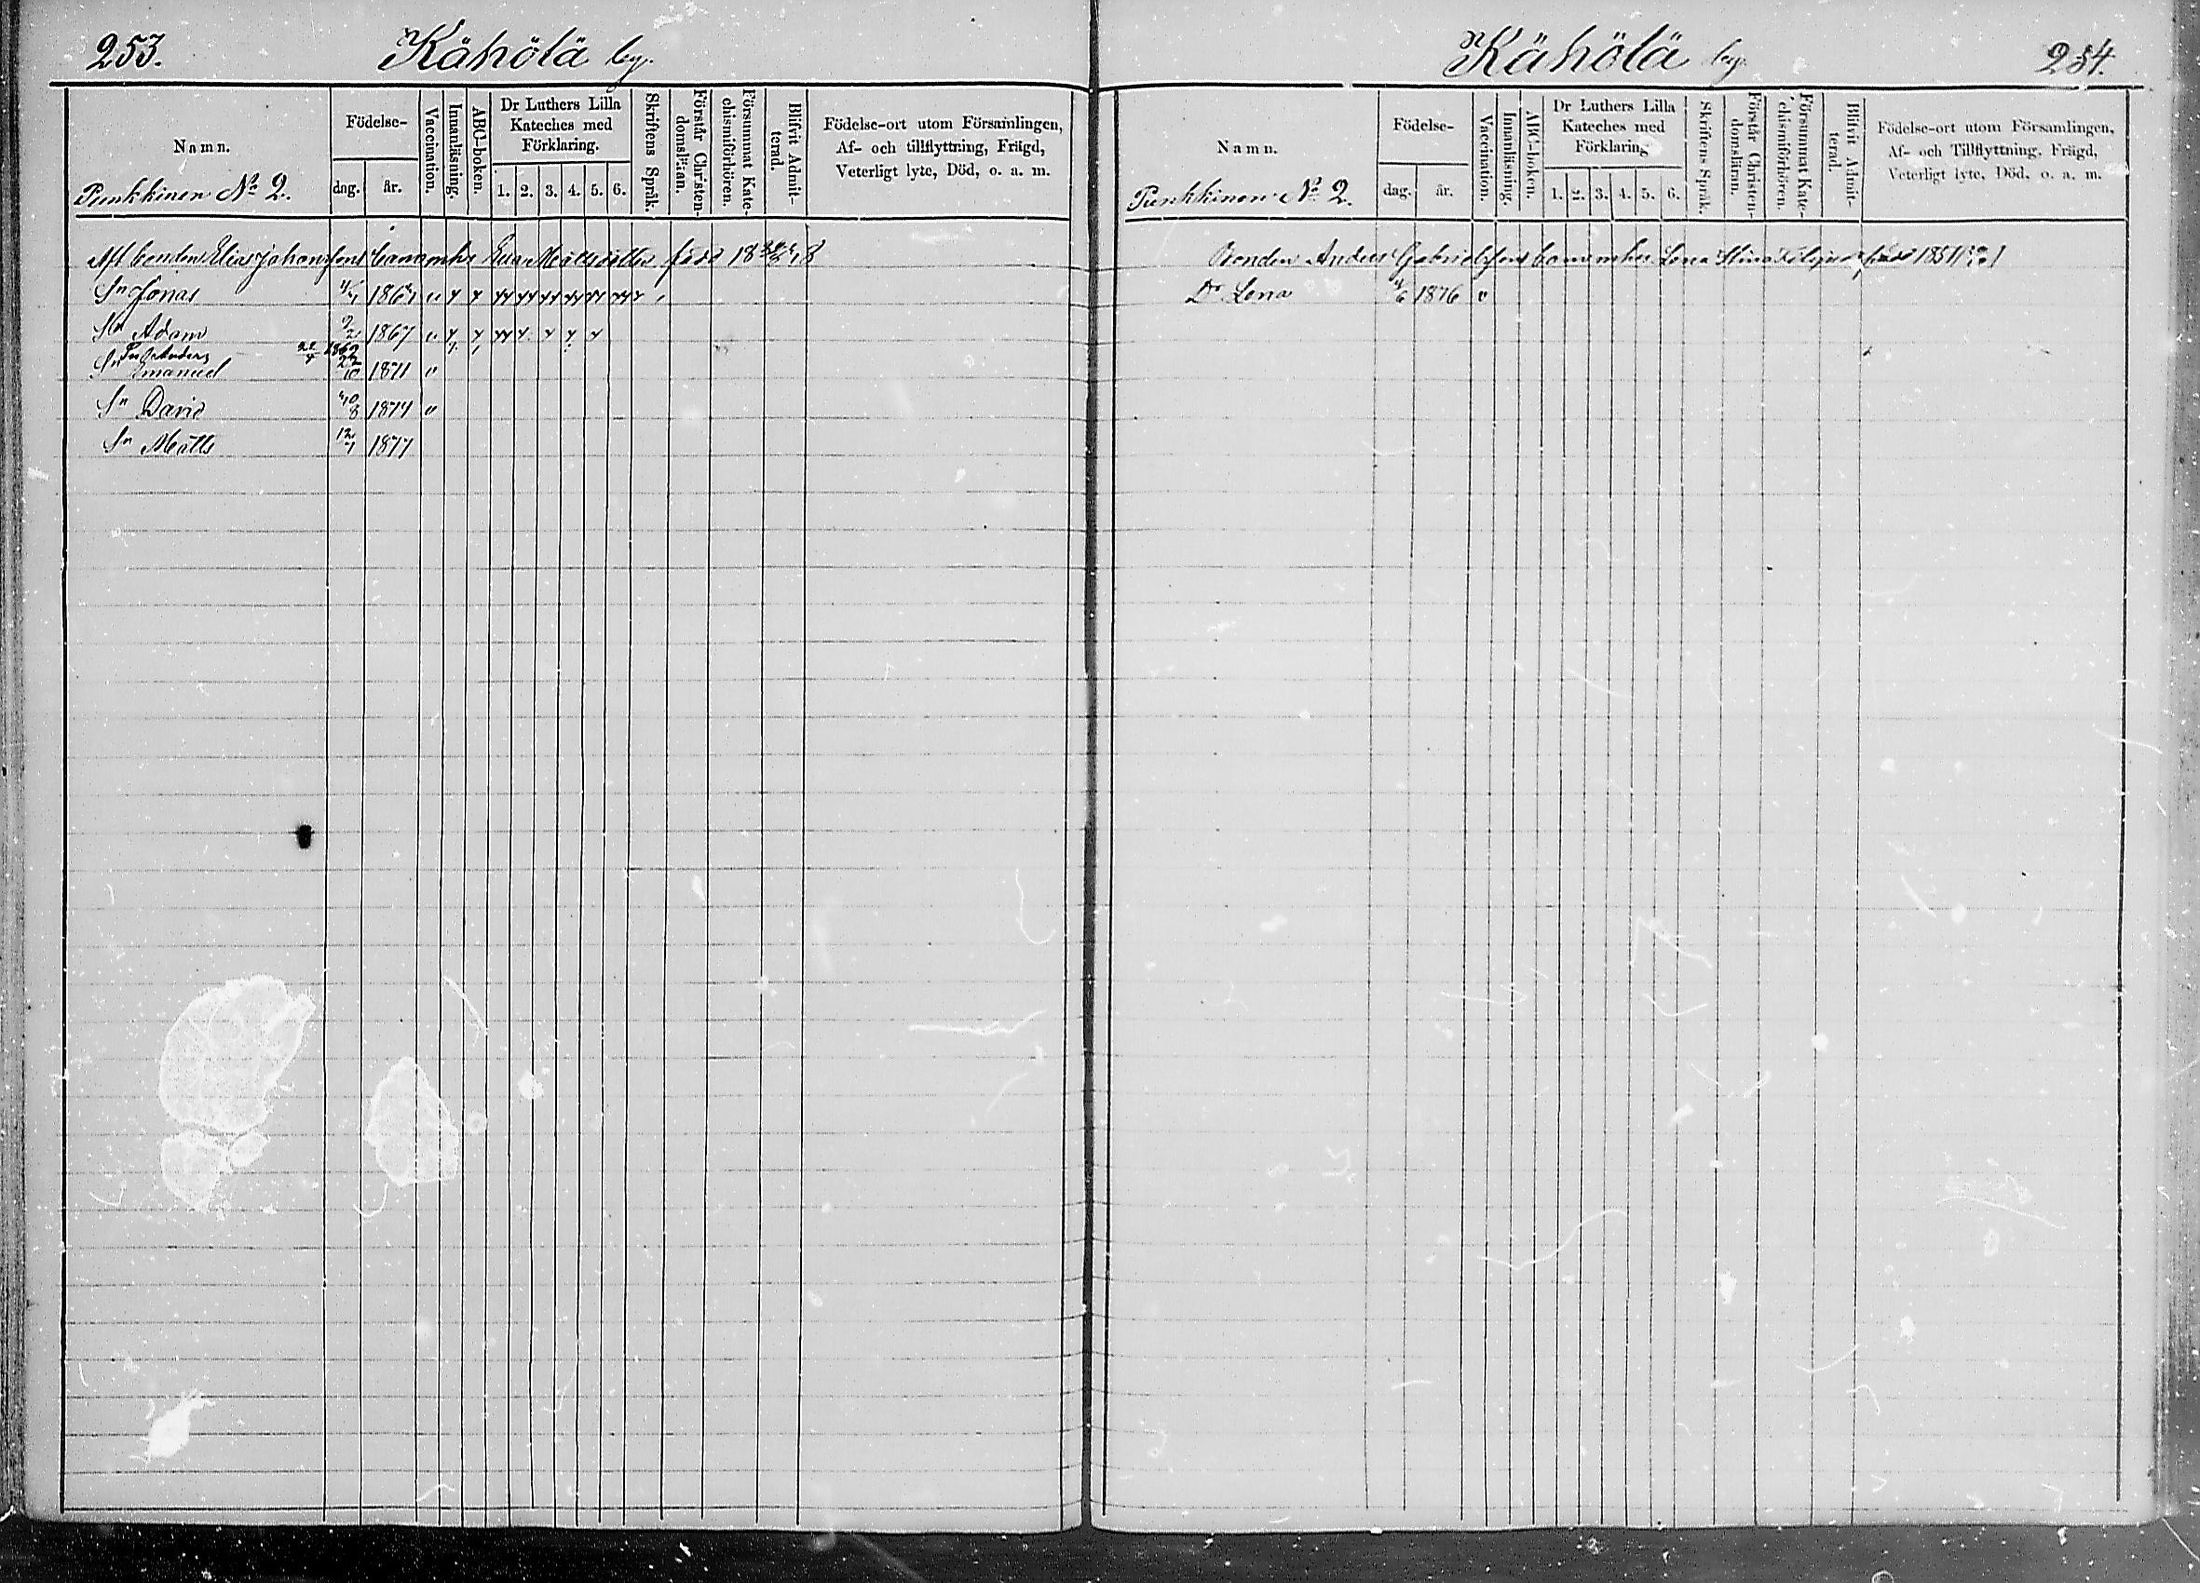 253. Kähölä by.
Namn.
Punkkinen No 2.
Födelse-
dag. år.
Vaccination.
Innanläsning.
ABC-boken.
Dr Luthers Lilla
Kateches med
Förklaring.
1. 2. 3. 4. 5. 6.
Skriftens Språk.
Förstår Christen-
domsläran.
Försummat Kate-
chismiförhören.
Blifvit Admit-
terad.
Födelse-ort utom Församlingen,
Af- och tillflyttning, Frägd,
Veterligt lyte, Död, o. a. m.
Afl bonden Elias Johansson Matsdotter född
Sn Jonas
Sn Adam 9/2 1867 v
Sn Emanuel 1871 v
Sn David 1874 v
Sn Matts 12/7 1877
Kähölä by. 254.
Namn.
Punkkinen No 2.
Födelse-
dag. år.
Vaccination.
Innanläsning.
ABC-boken.
Dr Luthers Lilla
Kateches med
Förklaring
1. 2. 3. 4. 5. 6.
Skriftens Språk.
Förstår Christen-
domsläran.
Försummat Kate-
chismiförhören.
Blifvit Admit-
terad.
Födelse-ort utom Församlingen,
Af- och Tillflyttning, Frägd,
Veterligt lyte, Död, o. a. m.
Bonden Anders Gabrielsson Lena Stina född 1851
Dr Lena 1876 v